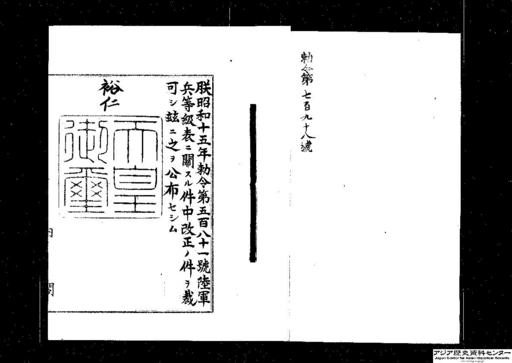 勅令第七百九十八號
朕昭和十五年勅令第五百八十一號陸軍
兵等級表ニ關スル件中改正ノ件ヲ裁
可シ玆ニ之ヲ公布セシム
裕仁
天皇
御璽
内閣
アジア歴史資料センター
Japan Center for Asian Historical Records